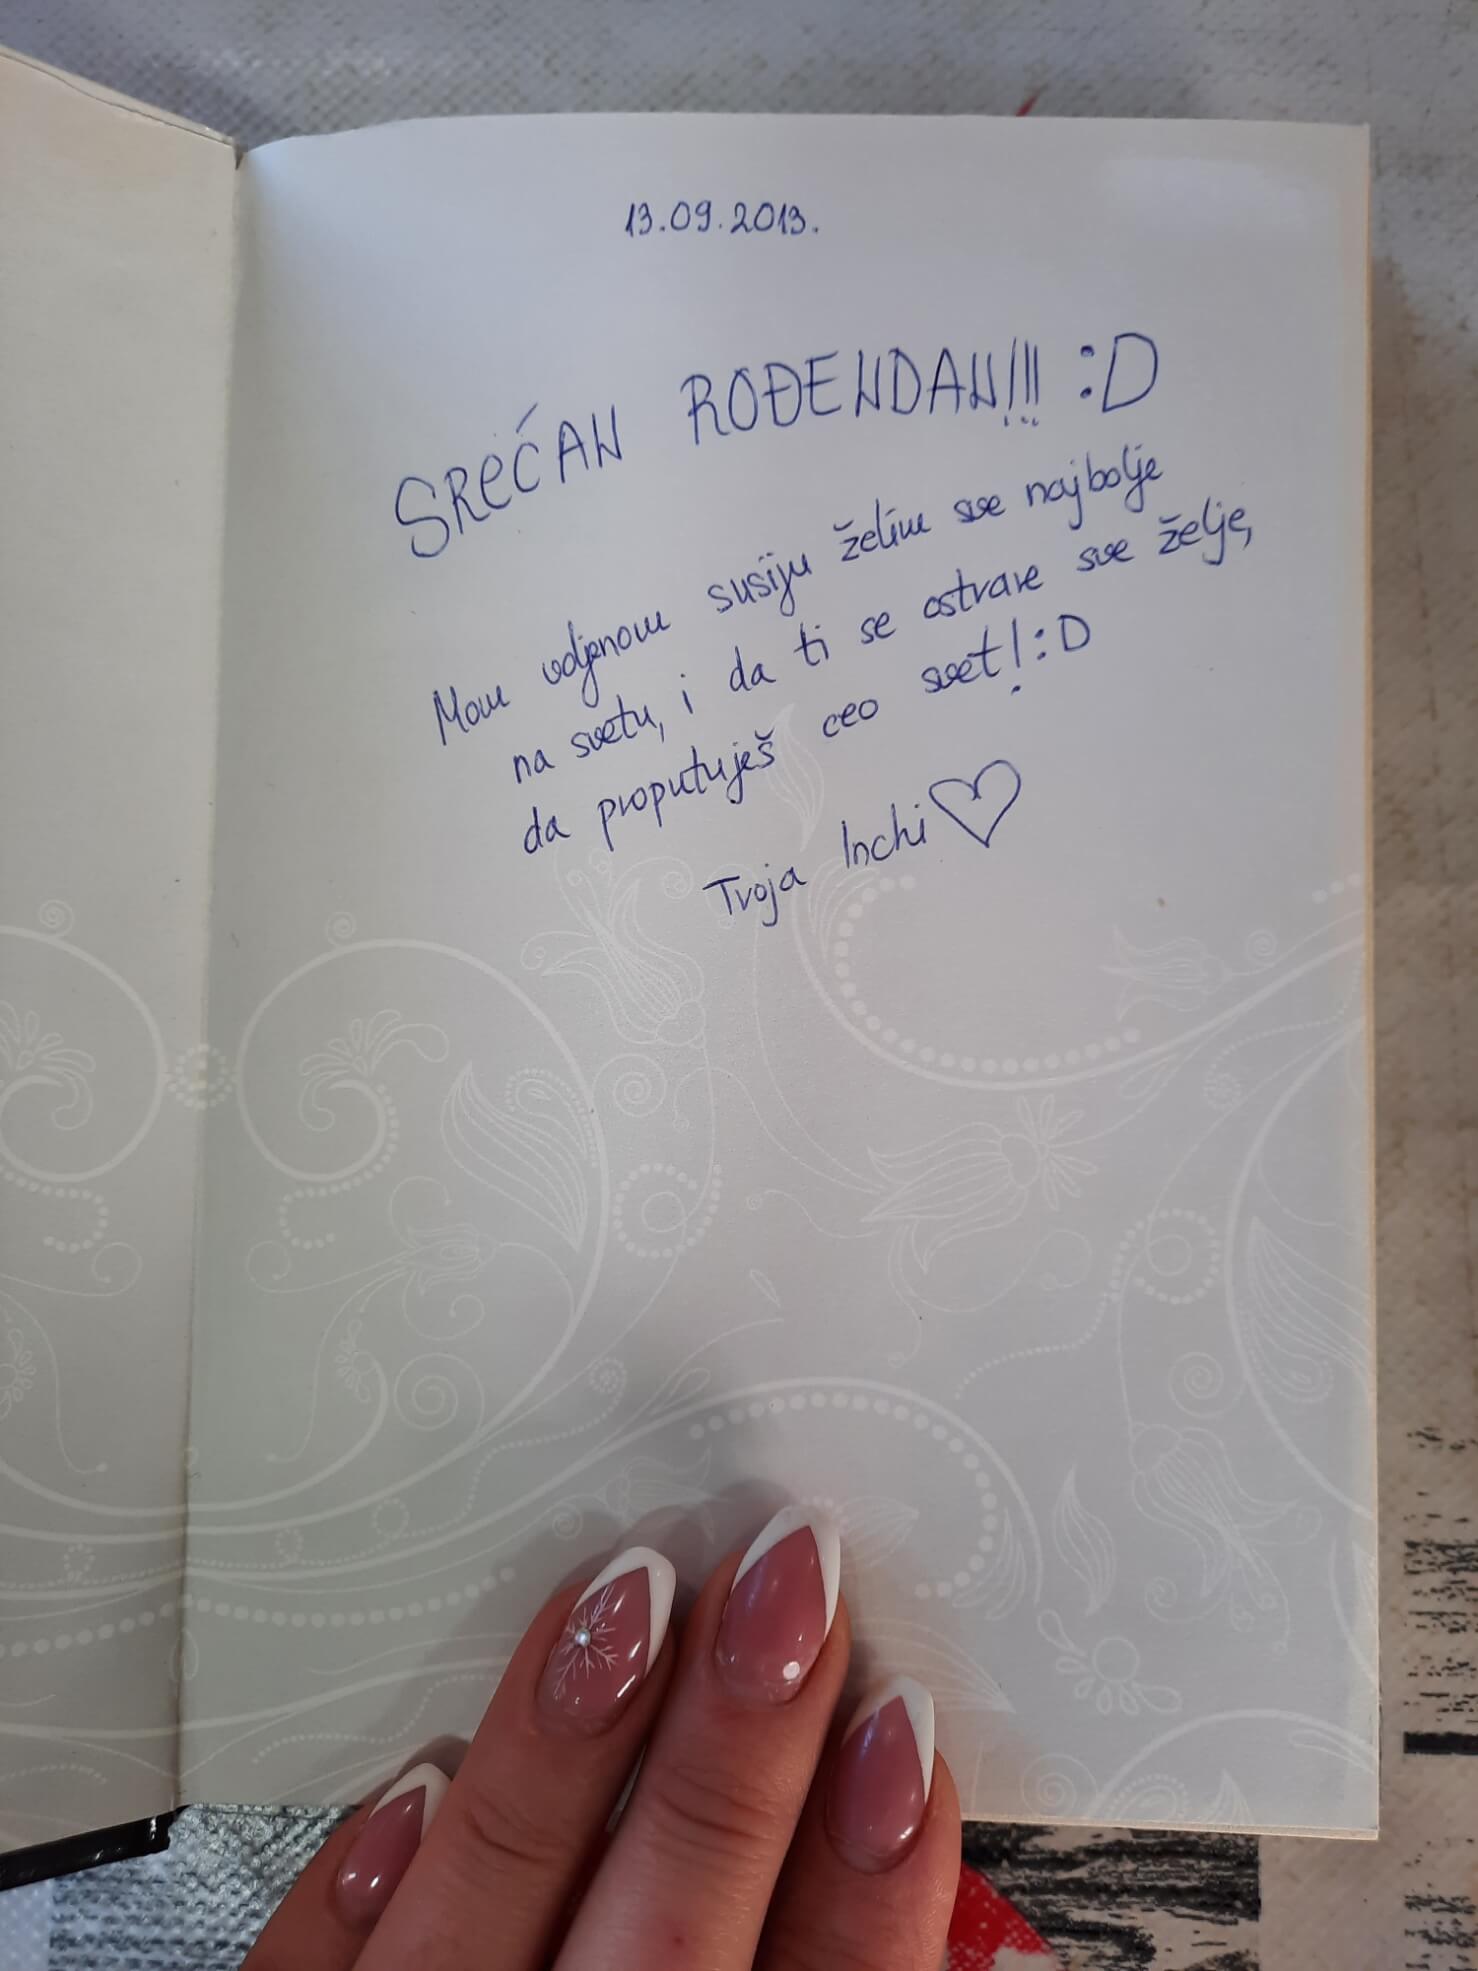 13.09.2013.
SREĆAN ROĐENDAN!!! :D
Mom voljenom sušiju želim sve najbolje
na svetu, i da ti se ostvare sve želje,
da proputuješ ceo svet! :D
Tvoja Inchi ♡